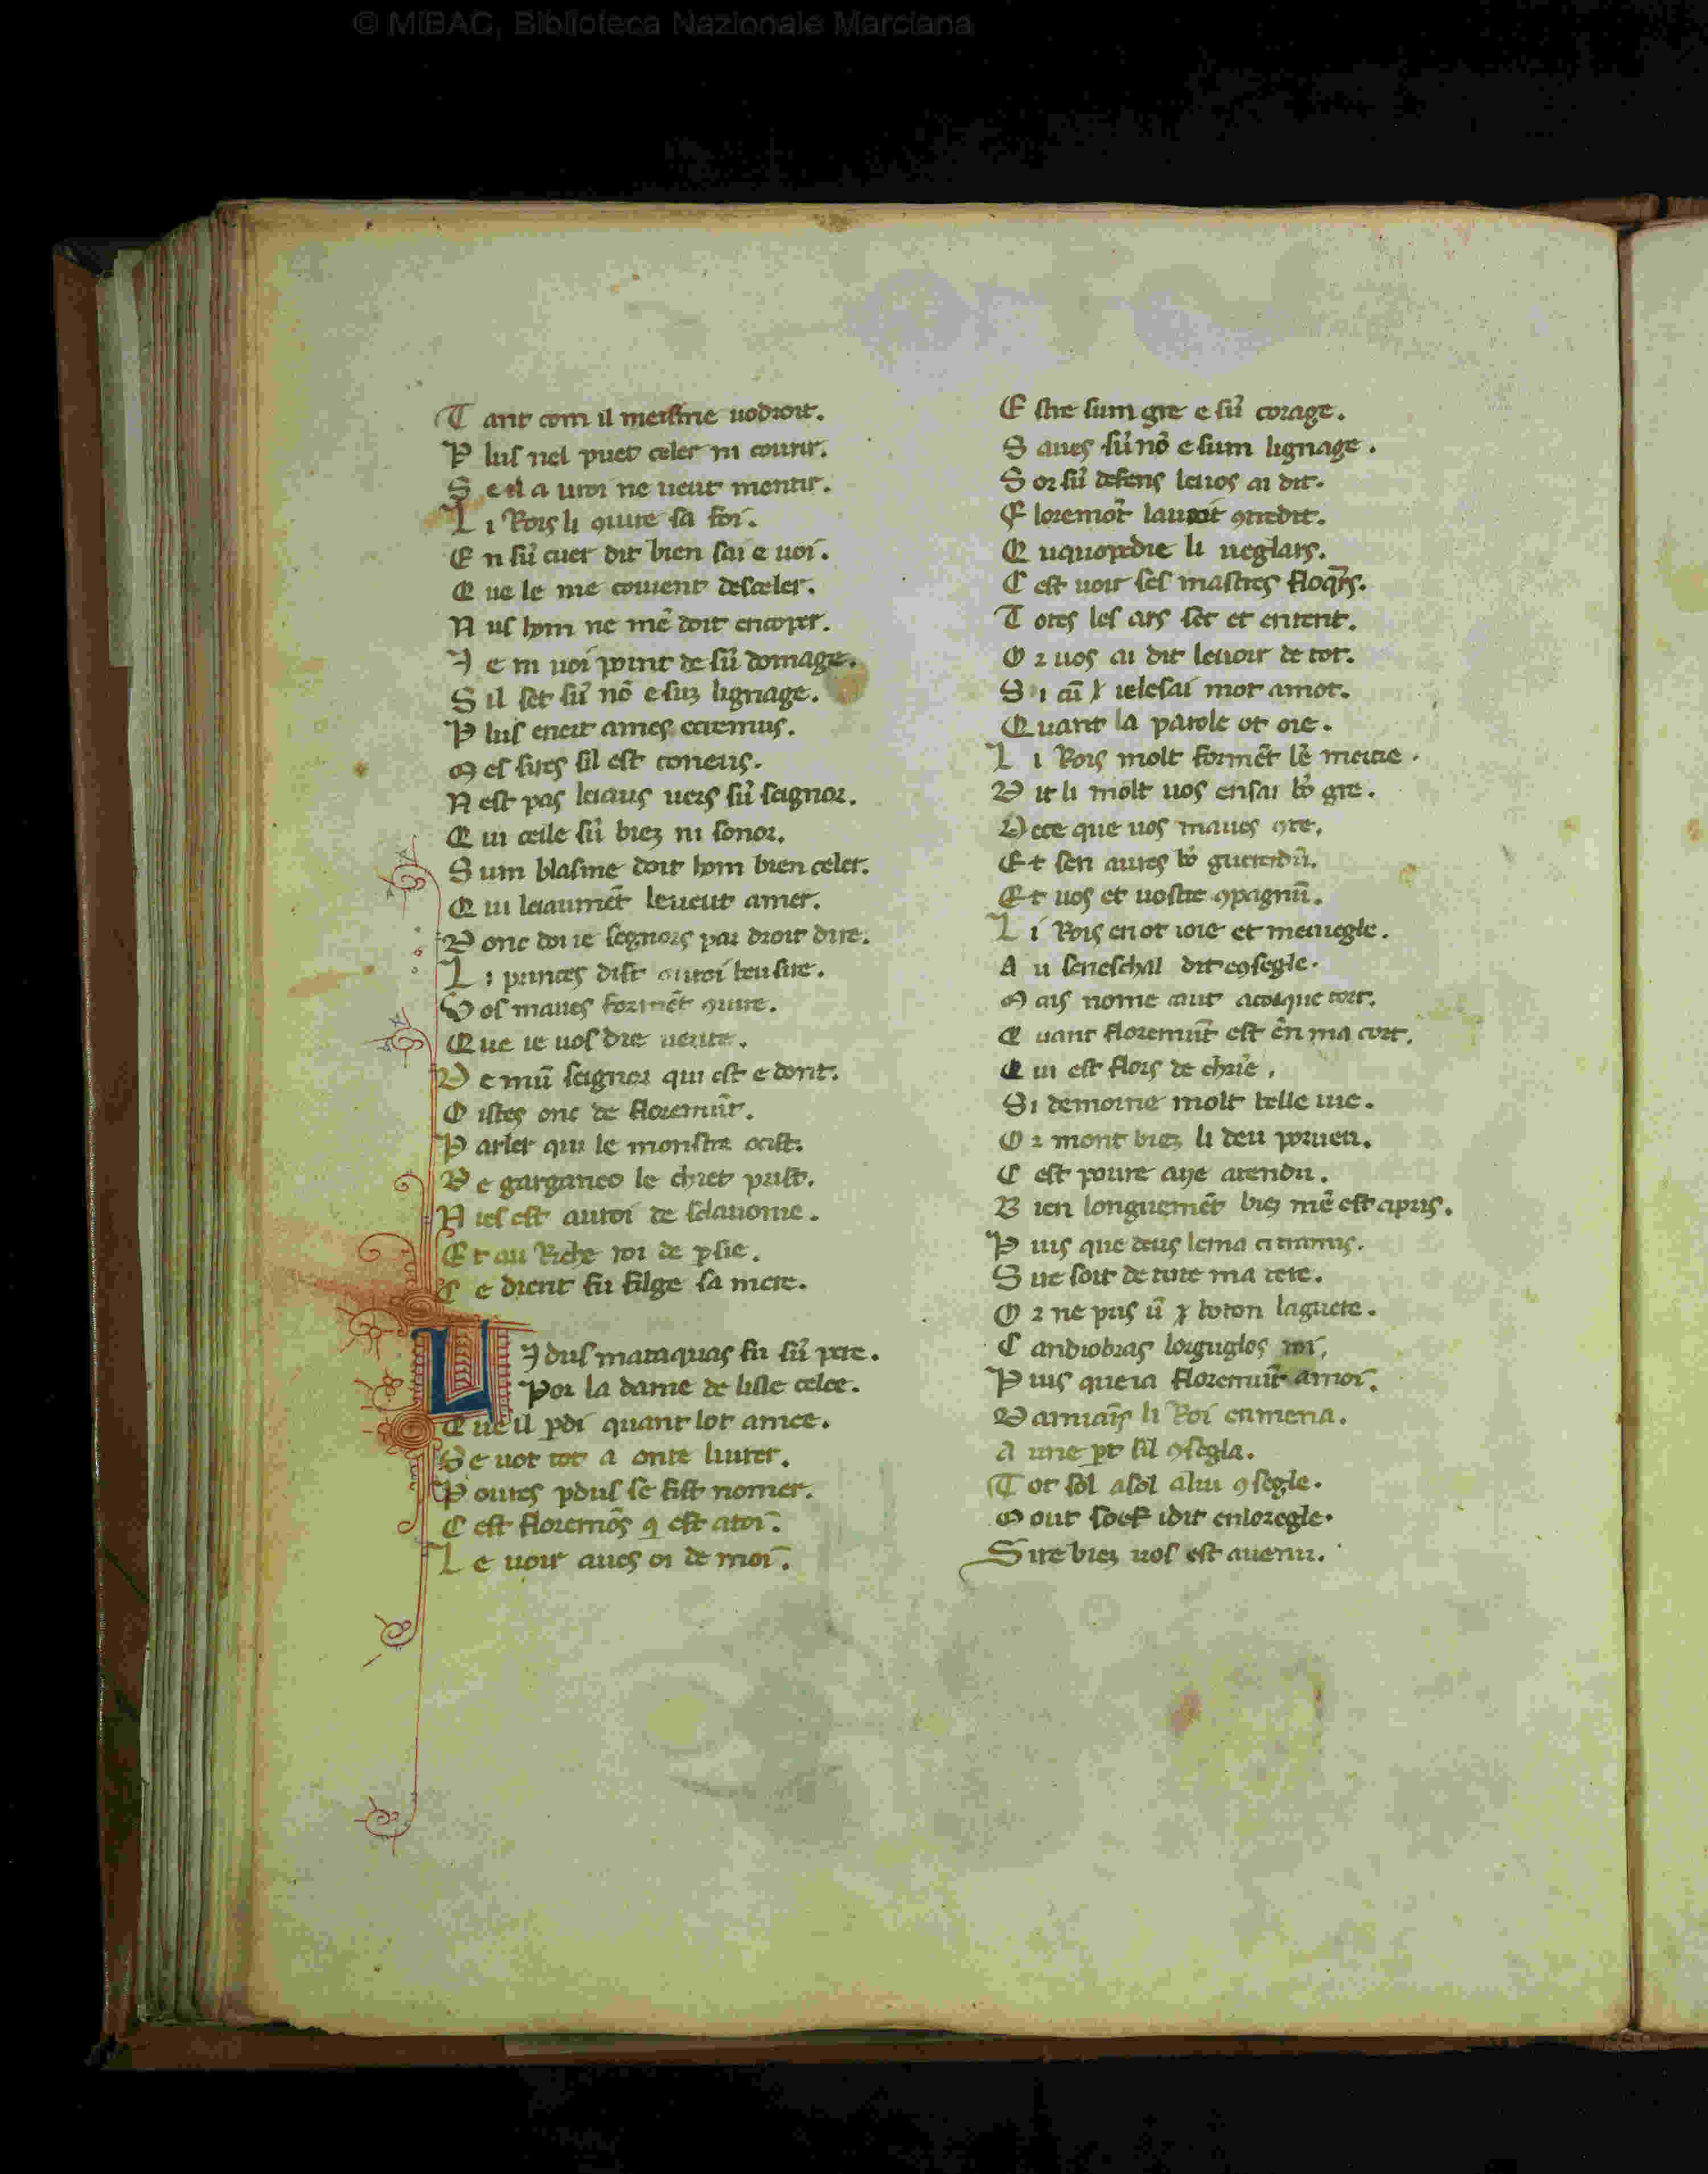 © MiBAC, Biblioteca Nazionale Marciana
T ant com il meisme uodroit.
P lus nel puet celer ni courir.
S e il a uroi ne ueut mentir.
L i Rois li ꝯiure sa foi.
E n sũ cuer dit bien sai e uoi.
Q ue le me couient desceler.
N us hom ne mẽ doit encoper.
J e ni uoi point de sũ domage.
S il set sũ nõ e suz lignage.
P lus eneit ames
M es sires sil est coneus.
N est pas leiaus uers sũ seignor.
Q ui ceille sũ biez ni sonor.
S um blasme doit hom bien celer.
Q ui leiaumẽt leueut amer.
D onc doi ie segnors par droit dire.
L i princes dist beu sire.
V os maues formẽt ꝯiure.
Q ue ie uos die uerite.
D e mũ seignor qui est e dont.
O istes onc de floremũt.
P arler qui le monstre ocist.
D e garganeo le chiet prist.
N ies est auroi de sclauonie.
E t au Riche roi de psie.
C e dient fu filge sa mere.
M Jdus mataquas fu sũ pere.
Por la dame de lisle celee.
Q ue il pdi quant lot amee.
S e uot tot a onte liurer.
P oures pdus se fist nomer.
C est floremõs q est atoi.
L e uoir aues oi de moi.
E stre sum gre e sũ corage.
S aues sũ nõ e sum lignage.
S or sũ defens leuos ai dit.
F loremõt lauoit ꝯtredit.
Q uquopedie li ueglars.
C est uoir ses mastres floqrs.
T otes les ars set et entent.
O r uos ai dit leuoir de tot.
S i cũ ielesai mot amot.
Q uant la parole ot oie.
L i Rois molt formẽt lẽ mercie.
D it li molt uos ensai bõ gre.
D ece que uos maues ꝯte.
E t sen aures bõ guerredũ.
E t uos et uostre ꝯpagnũ.
L i Rois en ot ioie et meruegle.
A u seneschal dit eꝯsegle.
M ais nome aut acoique tort.
Q uant floremũt est ẽn ma cort.
Q ui est flors de chrie.
S i demoine molt belle uie.
O r mont biez li deu porueu.
C est poure aye atendu.
B ien longuemẽt biez mẽ est apris.
P uis que deus lema ci tramis.
S ue soit de tute ma tere.
O r ne pris ũ boton laguere.
C andiobras lorguglos roi.
P uis queia floremũt amoi.
D amiãs li Roi enmena.
A une pt sil ꝯsegla.
T ot sol asol alui ꝯsegle.
M out soef idit enloregle.
S ire biez uos est auenu.